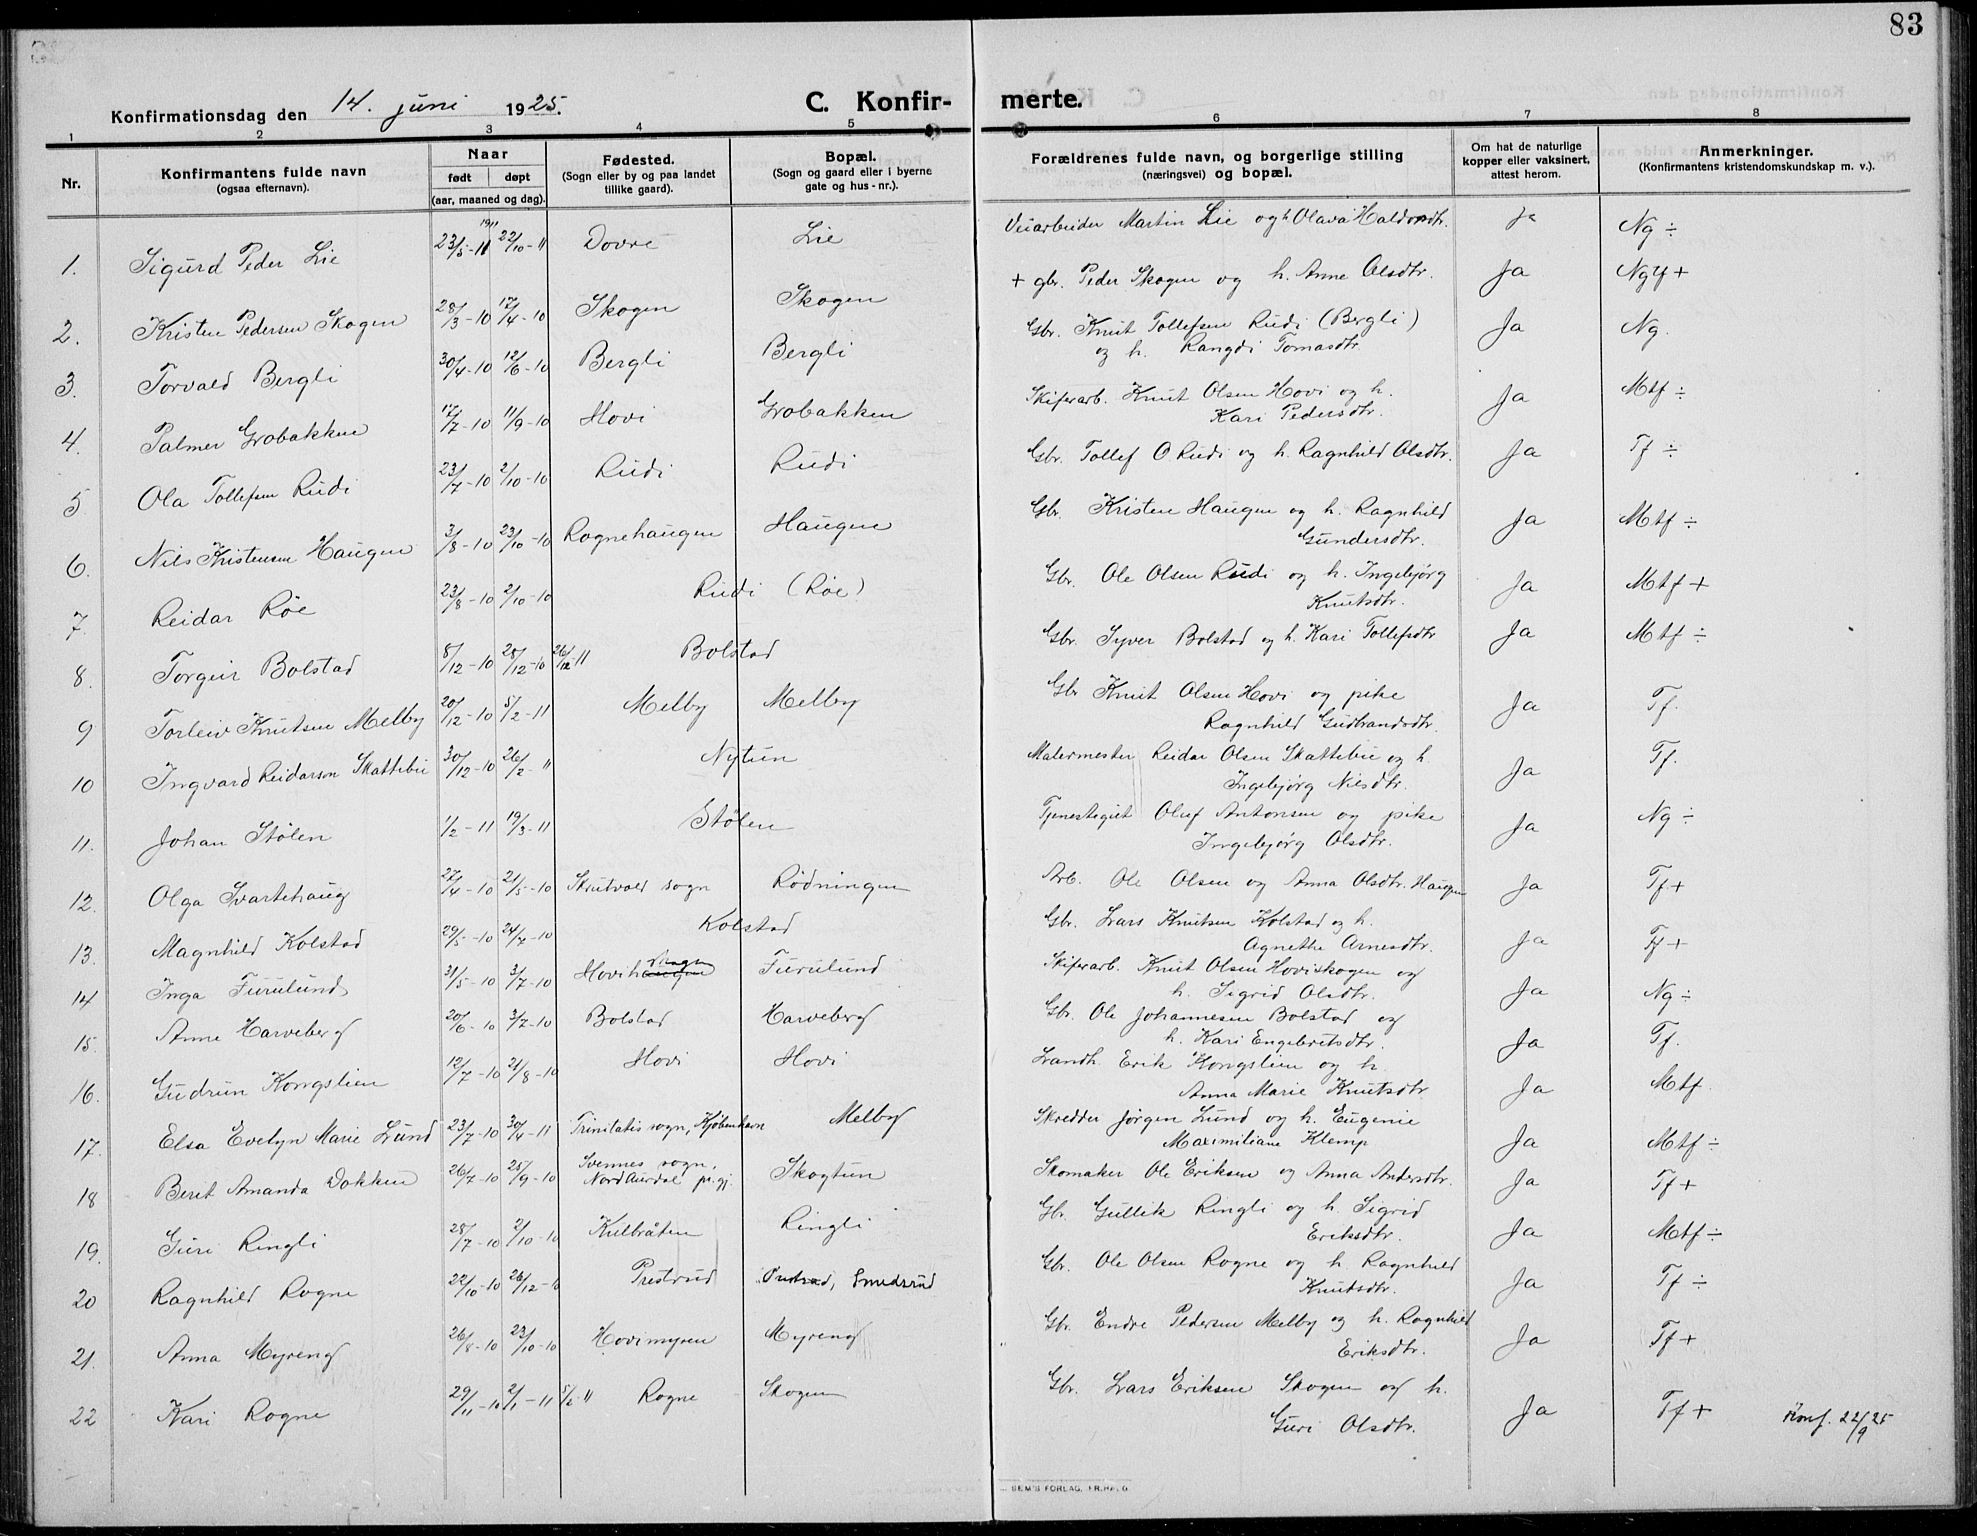 83
Konfirmationsdag den 14. juni 1925.
C. Konfir- merte.
1 2 3 4 5 6 7 8
Nr.
Konfirmantens fulde navn
(ogsaa efternavn).
Naar
født døpt
(aar, maaned og dag).
Fødested.
(Sogn eller by og paa landet
tillike gaard).
Bopæl.
(Sogn og gaard eller i byerne
gate og hus-nr.).
Forældrenes fulde navn, og borgerlige stilling
(næringsvei) og bopæl.
Om hat de naturlige
kopper eller vaksinert.
attest herom.
Anmerkninger.
(Konfirmantens kristendomskundskap m. v.).
1911
1. Sigurd Peder Lie 23/5-11 22/10-11 Dovre Lie Veiarbeider Martin Lie og h Olava Haldordtr. Ja Ng ÷
2. Kristen Pedersen Skogen 28/3-10 17/4-10 Skogen Skogen + gbr. Peder Skogen og h. Anne Olsdtr. Ja Ngtf +
3. Torvald Bergli 30/4-10 12/6-10 Bergli Bergli Gbr. Knut Tollefsen Rudi (Bergli)
og h. Rangdi Tomasdtr Ja Ng.
4. Palmer Grobakken 17/7-10 11/9-10 Hovi Grobakken Skiferarb. Knut Olsen Hovi og h.
Kari Pedersdtr. Ja Mtf ÷
5 Ola Tollefsen Rudi 23/7-10 2/10-10 Rudi Rudi Gbr. Tollef O Rudi og h. Ragnhild Olsdtr. Ja Tf ÷
6. Nils Kristensen Haugen 3/8-10 23/10-10 Rognehaugen Haugen Gbr. Kristen Haugen og h. Ragnhild
Gundersdtr. Ja Mtf ÷
7. Reidar Røe 23/8-10 2/10-10 Rudi (Røe) Gbr. Ole Olsen Rudi og h. Ingebjørg
Knutsdtr. Ja Mtf +
8. Torgeir Bolstad 8/12-10 28/12-10 26/12-11 Bolstad Gbr. Syver Bolstad og h. Kari Tollefsdtr Ja Mtf ÷
9 Torleiv Knutsen Melby 20/12-10 5/2-11 Melby Melby Gbr Knut Olsen Hovi og pike
Ragnhild Gudbrandsdtr. Ja Tf.
10 Ingvard Reidarson Skattebu 30/12-10 26/2-11 Nytun Malermester Reidar Olsen Skattebu og h.
Ingebjørg Nilsdtr. Ja Tf.
11. Johan Stølen 1/2-11 19/3-11 Stølen Tjenestegut Oluf Antonsen og pike
Ingebjørg Olsdtr. Ja Ng ÷
12. Olga Svartehaug 27/4-10 21/5-10 Skrutvold sogn Rødningen Arb. Ole Olsen og Anna Olsdtr. Haugen Ja Tf +
13. Magnhild Kolstad 29/5-10 24/7-10 Kolstad Gbr. Lars Knutsen Kolstad og h.
Agnethe Arnesdtr. Ja Tf +
14 Inga Furulund 31/5-10 3/7-10 Hovihaugen skogen Furulund Skiferarb. Knut Olsen Hoviskogen og
h. Sigrid Olsdtr. Ja Ng ÷
15. Anne Harveberg 20/6-10 3/7-10 Bolstad Harveberg Gbr. Ole Johannesen Bolstad og
h. Kari Engebretsdtr. Ja Tf.
16. Gudrun Kongslien 12/7-10 21/8-10 Hovi Hovi Landh. Erik Kongslien og h.
Anna Marie Knutsdtr Ja Mtf.
17. Elsa Evelyn Marie Lund 23/7-10 30/4-11 Trinitatis sogn, Kjøbenhavn Melby Skredder Jørgen Lund og h. Eugenie
Maximiliane Klemp Ja Mtf ÷
18 Berit Amanda Dokken 26/7-10 25/9-10 Svennes sogn,
Nord Aurdal pr.gj. Skogtun Skomaker Ole Eriksen og Anna Andersdtr. Ja Tf +
19. Guri Ringli 28/7-10 2/10-10 Kilbråten Ringli Gbr. Gullik Ringli og h. Sigrid
Eriksdtr. Ja Mtf ÷
20 Ragnhild Rogne 22/10-10 26/12-10 Prestrud Prestrud, Smedsrud Gbr. Ole Olsen Rogne og h. Ragnhild
Knutsdtr. Ja Tf ÷
21. Anna Myreng 26/8-10 23/10-10 Hovimyren Myreng Gbr. Endre Pedersen Melby og h. Ragnhild
Eriksdtr. Ja Tf +
22 Kari Rogne 29/11-10 2/1-11 5/2-11 Rogne Skogen Gbr. Lars Eriksen Skogen og h.
Guri Olsdtr. Ja Tf + Konf. 22/9 25
SEM'S FORLAG, FR.HALD.